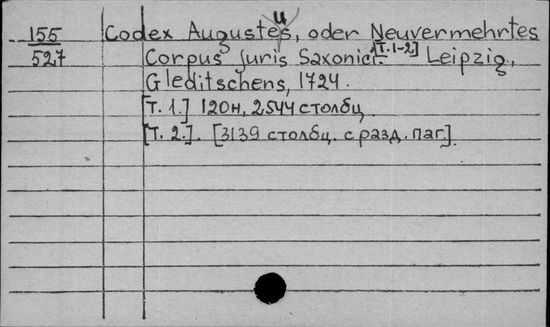 155 Codex Augusteus, oder Neuvermehrtes
527 Corpus juris Saxonici [T. 1-2] Leipzig,
Gleditschens, 1724.
[T. 1.] 120н, 2544 столбц.
[T. 2.]. [3139 столбц. с разд. паг.].